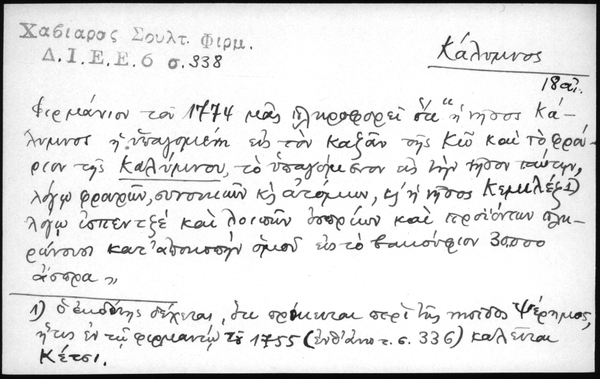 Χαβιαρᾶς Σουλτ. Φιρμ.
Δ.Ι.Ε.Ε. 6 σ. 338
Κάλυμνος
18 αἰ.
Φιρμάνιον τοῦ 1774 μᾶς πληροφορεῖ ὅτι "ἡ νῆσος Κά-
λυμνος ἡ ὑπαγομένη εἰς τὸν καζᾶν τῆς Κῶ καὶ τὸ φρού-
ριον τῆς Καλύμνου, τὸ ὑπαγόμενον εἰς τὴν νῆσον ταύτην,
λόγῳ φρουρῶν, συνοικιῶν κ) ἀτόμων, κ) ἡ νῆσος Κεμιλέζ 1)
λόγῳ ἰσπεντζὲ καὶ λοιπῶν ὀσπρίων καὶ προϊόντων πλη-
ρώνουσι κατ' ἀποκοπὴν ὁμοῦ εἰς τὸ βακούφιον 30.000
ἄσπρα"
1) ὁ ἐκδότης δέχεται, ὅτι πρόκειται περὶ τῆς νησῖδος Ψέρημος,
ἥτις ἐν τῷ φιρμανίῳ τοῦ 1755 (ἔνθ' ἀνωτ. σ. 336) καλεῖται
Κέτσι.